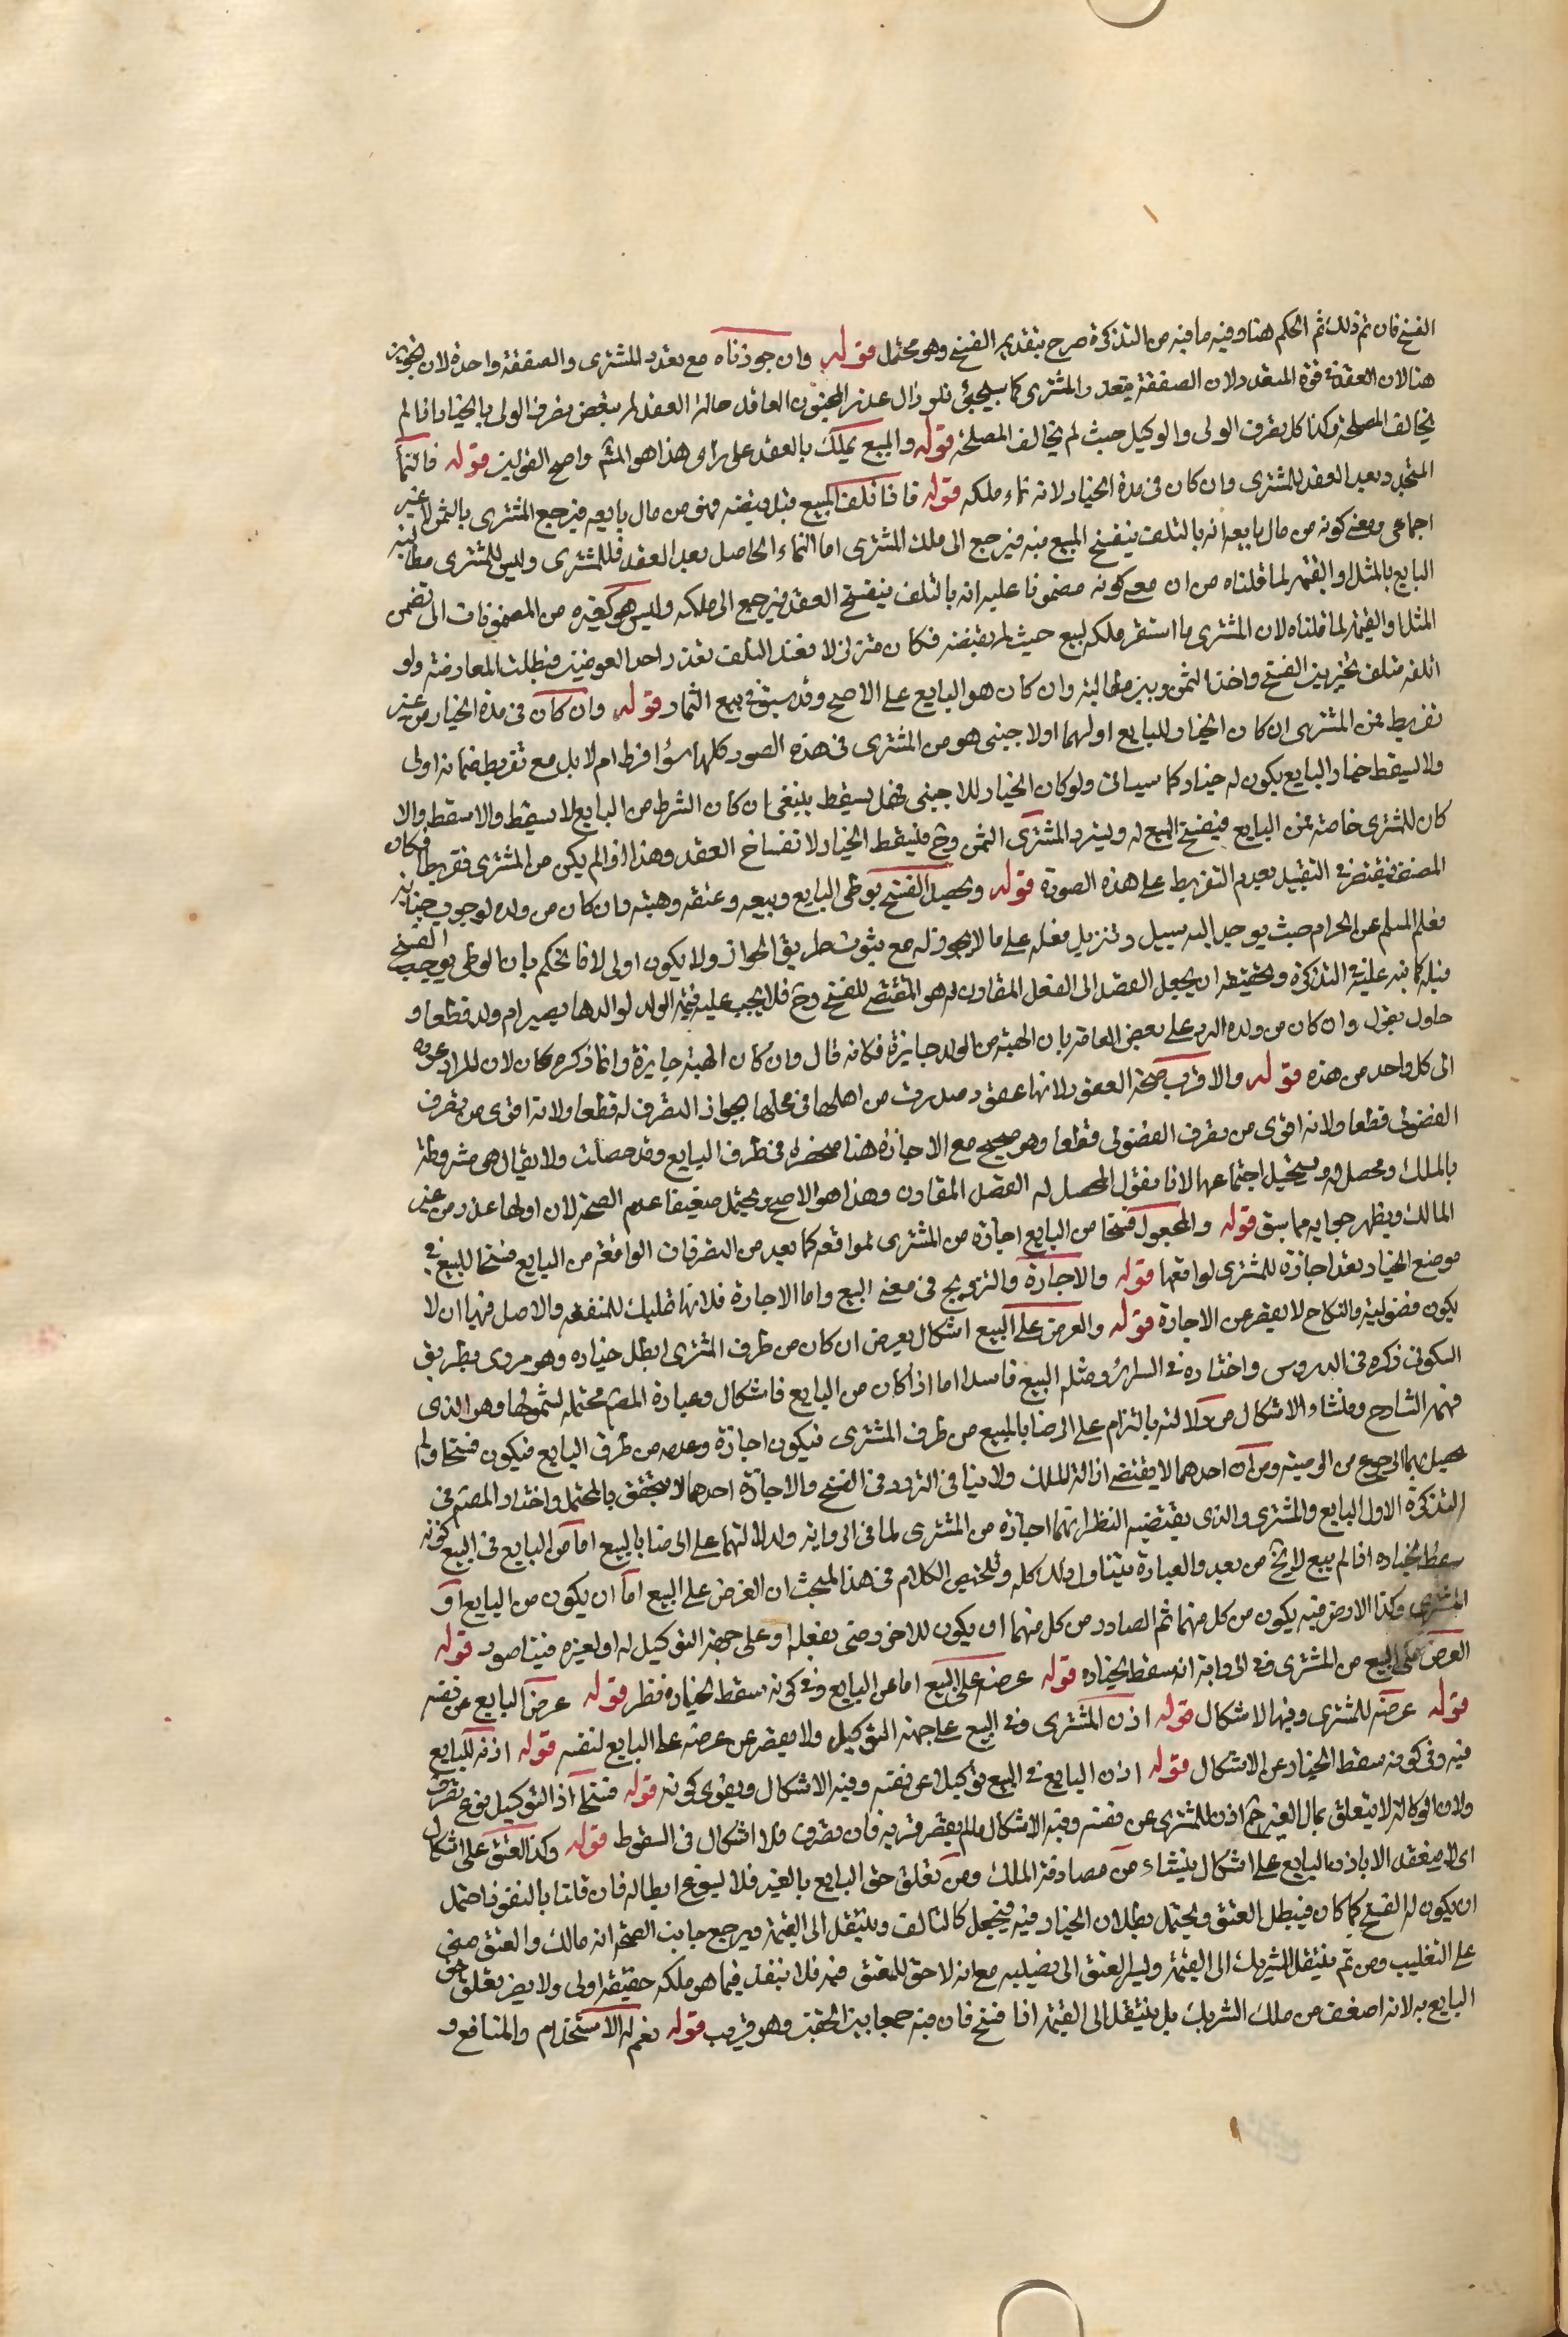 الفسخ فان تم ذلك تم الحكم هنا وفيه ما فيه من التذكرة صرح بتقديم الفسخ وهو محتمل قوله وان جوزناه مع تعدد المشتري والصفقة واحدة لان
هنا لان العقد في قوة المتعدد لان الصفقة بتعدد المشتري كما سيجيئ فلو زال عذر المجنون العاقد حالة العقد لم ينقض تصرف الولي بالخيار اذا لم
يخالف المصلحة وكذا كل تصرف الولي والوكيل حيث لم يخالف المصلحة قوله والمبيع يملك بالعقد على راى هذا هو واصح القولين قوله فالنماء
المتجدد بعد العقد للمشتري وان كان في مدة الخيار لانه نماء ملكه قوله فاذا تلف المبيع قبل قبضه فهو من مال بايعه فيرجع المشتري بالثمن لا غير
اجماعي ومعنى كونه من مال بايعه انه بالتلف ينفسخ المبيع منه فيرجع الى ملك المشتري اما النماء الحاصل بعد العقد فللمشتري وليس للمشتري مطالبة
البايع بالمثل او القيمة لما قلناه من ان معنى كونه مضمونا عليه انه بالتلف ينفسخ العقد فيرجع الى ملكه وليس هو كغيره من المضمونات التي تضمن
المثل او القيمة لما قلناه لان المشتري ما استقر ملكه لبيع حيث لم يقبضه فكان متزلزلا فعند التلف تعذر احد العوضين فبطلت المعاوضة ولو
اتلفه متلف تخير بين الفسخ واخذ الثمن وبين مطالبته وان كان هو البايع على الاصح وقد سبق في بيع الثمار قوله وان كان في مدة الخيار من غير
تفريط فمن المشتري ان كان الخيار للبايع او لهما او لاجنبي هو من المشتري في هذه الصور كلها سواء فرط ام لا بل مع تفريط ضمانه اولى
ولا يسقط خيار البايع يكون له خيار كما سيأتي ولو كان الخيار للاجنبي فهل يسقط ينبغي ان كان الشرط من البايع لا يسقط والا سقط والا
كان للمشتري خاصة فمن البايع فينفسخ البيع له ويسترد المشتري الثمن وح فليسقط الخيار لانفساخ العقد وهذا اذا لم يكن من المشتري تفريط فكان
المصنف فيقتصر في التقييد بعدم التفريط على هذه الصورة قوله ويحصل الفسخ بوطي البايع وبيعه وعتقه وهبته وان كان من ولده لوجوب
فعل المسلم عن الحرام حيث يوجد اليه سبيل وتنزيل فعله على ما لا يجوز له مع ثبوت طريق الجواز ولا يكون اولى لانا نحكم بان الوطي يوجب الفسخ
قبله كما نبه عليه في التذكرة وتحقيقه ان يجعل القصد الى الفعل المقارن له هو المقتضي للفسخ وح فلا يجب عليه قيمة الولد لو الدها ويصير ام ولد قطعا و
حاول بقول وان كان من ولده الرد على بعض العامة بان الهبة من الولد جايزة فكانه قال وان كان الهبة جايزة وانما ذكره كان لان المراد عوده
الى كل واحد من هذه قوله والاقرب صحة العقود لانها عقود صدرت من اهلها في محلها بجواز التصرف له قطعا ولانه اقوى من تصرف
الفضولي قطعا ولانه اقوى من تصرف الفضولي قطعا وهو صحيح مع الاجازة هنا منحصرة في طرف البايع وقد حصلت ولا يقال هي مشروطة
بالملك ومحصل له ويستحيل اجتماعهما لانا نقول المحصل له القصد المقارن وهذا هو الاصح ويحتمل ضعيفا عدم الصحة لان اولها عقد من غير
المالك ويظهر جوابه مما سبق قوله والمجعول فسخا من البايع اجازة من المشتري لموافقه كما يعد من التصرفات الواقعة من البايع فسخا للبيع في
موضع الخيار يعد اجازة للمشتري لو اوقعها قوله والاجارة والتزويج في معنى البيع واما الاجارة فلانها تمليك للمنفعة والاصل فيها ان لا
يكون فضولية والنكاح لا يقصر عن الاجارة قوله والعرض على البيع اشكال يعرض ان كان من طرف المشتري ابطل خياره وهو مروي بطريق
السكوني ذكره في الدروس واختاره في السرائر ومثله البيع فاسدا اما اذا كان من البايع فاشكال وعبارة المص محتملة لشمولها وهو الذي
فهمه الشارح ومنشاء الاشكال من دلالته بالتزام على الرضا بالمبيع من طرف المشتري فيكون اجازة وعدمه من طرف البايع فيكون فسخا ولم
يحصل بهما الرجوع من الوصية ومن ان احدهما لا يقتضي ازالة الملك ولا ينافي التردد في الفسخ والاجازة احدهما لا يتحقق بالمحتمل واختار المص في
التذكرة الاول البايع والمشتري والذي يقتضيه النظر انهما اجازة من المشتري لما في الرواية ولدلالتهما على الرضا بالبيع اما من البايع في البيع كونه
سقط لخياره اذا لم يبيع لا يخ من بعد والعبارة تتناول ذلك كله وتلخيص الكلام في هذا المبحث ان العرض على البيع اما ان يكون من البايع او
المشتري وكذا الاذن فيه يكون من كل منهما ثم الصادر من كل منهما ان يكون للاخر حتى يفعله او على جهة التوكيل له او لغيره فيتا صور قوله
العرض على البيع من المشتري وفي الرواية انه سقط لخياره قوله عرضه على البيع اما من البايع وفي كونه سقط لخياره نظر قوله عرض البايع عن نفسه
قوله عرضه للمشتري وفيها الاشكال قوله اذن المشتري في البيع على جهة التوكيل ولا يقصر عن عرضه على البايع لنفسه قوله اذنه للبايع
فيه وفي كونه سقط الخيار عن الاشكال قوله اذن البايع في البيع توكيلا عن نفسه وفيه الاشكال ويقوى كونه قوله فسخا اذ التوكيل نوع تصرف
ولان الوكالة لا يتعلق بمال الغير ح اذن للمشتري عن نفسه وفيه الاشكال ما لم يقتصر فان تصرف فلا اشكال في السقوط قوله وكذا العتق على اشكال
اي لا ينعقد الا باذن البايع على اشكال ينشاء من مصادفة الملك ومن تعلق حق البايع بالغير فلا يسوغ ابطاله فان قلنا بالنفوذ احتمل
ان يكون له الفسخ كما كان فيبطل العتق ويحتمل بطلان الخيار فيه فيجعل كالتالف وينتقل الى القيمة ويرجع جانب الصحة انه مالك والعتق مبني
على التغليب ومن ثم ينتقل الشريك الى القيمة وليسر العتق الى نصيبه مع انه لا حق للمعتق فيه فلان ينفذ فيما هو ملكه حقيقة اولى ولا يضر تعلق حق
البايع به لانه اضعف من ملك الشريك بل ينتقل الى القيمة اذا فسخ فان فيه جمعا بين الحقين وهو قريب قوله نعم له الاستخدام والمنافع و